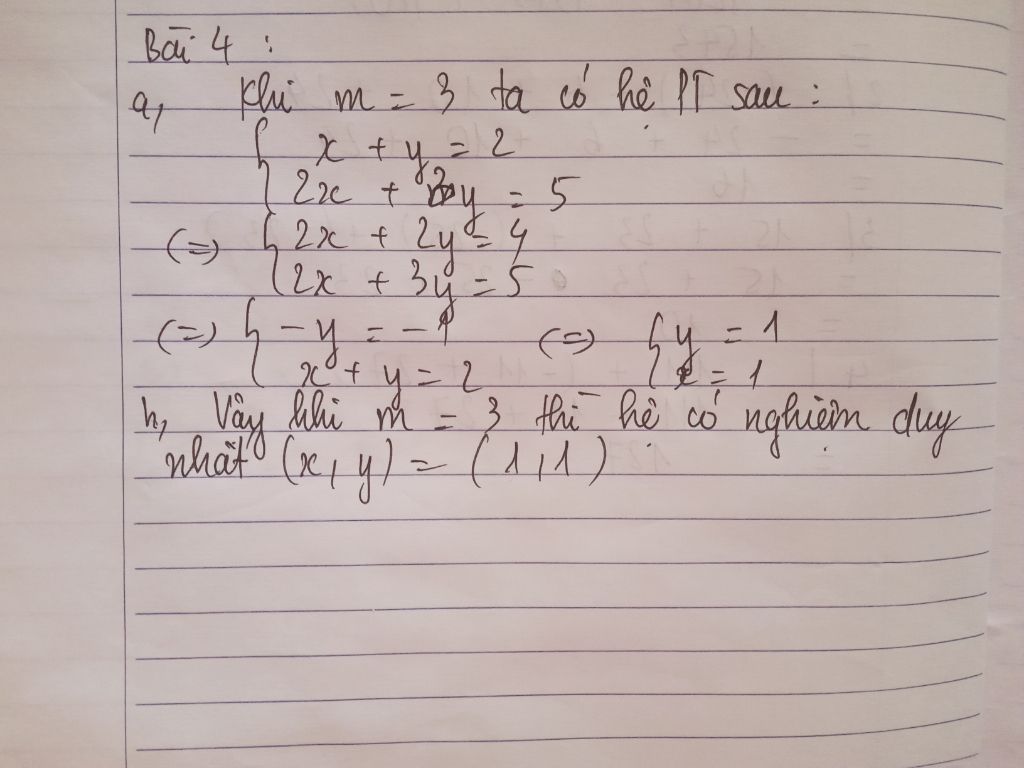 Bài 4 :
a, Khi m = 3 ta có hệ PT sau :
{ x + y = 2
2x + 3y = 5
(=) { 2x + 2y = 4
2x + 3y = 5
(=) { -y = -1 (=) { y = 1
x + y = 2 x = 1
h, Vậy khi m = 3 thì hệ có nghiệm duy
nhất (x, y) = (1, 1)